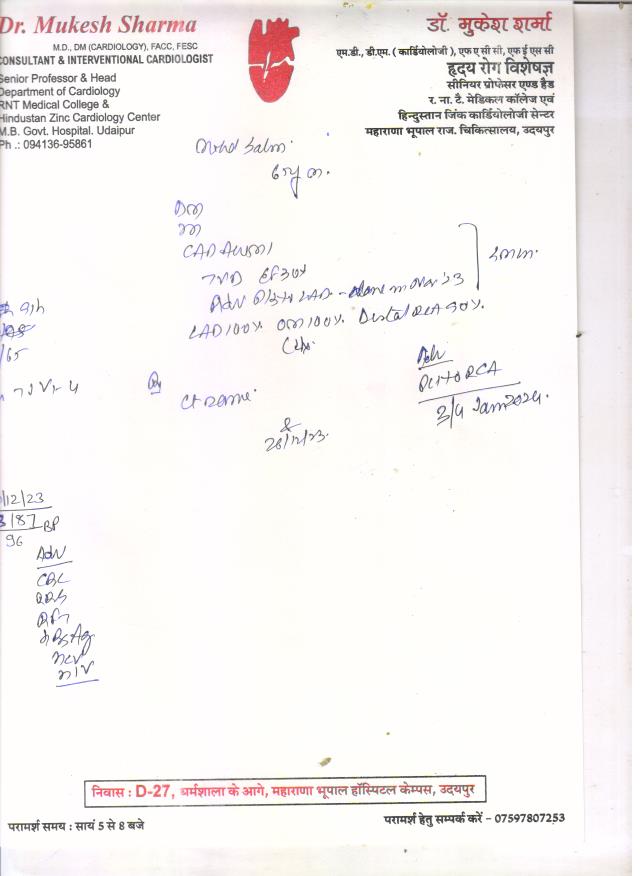 Dr. Mukesh Sharma
M.D., DM (CARDIOLOGY), FACC, FESC
CONSULTANT & INTERVENTIONAL CARDIOLOGIST
Senior Professor & Head
Department of Cardiology
RNT Medical College &
Hindustan Zinc Cardiology Center
M.B. Govt. Hospital. Udaipur
Ph .: 094136-95861
डॉ. मुकेश शर्मा
एम.डी., डी.एम. ( कार्डियोलोजी ), एफ ए सी सी, एफ ई एस सी
हृदय रोग विशेषज्ञ
सीनियर प्रोफेसर एण्ड हैड
र. ना. टै. मेडिकल कॉलेज एवं
हिन्दुस्तान जिंक कार्डियोलोजी सेन्टर
महाराणा भूपाल राज. चिकित्सालय, उदयपुर
Mohd Salm
DM
CAD AWMI
EF 30%
Adv LAD - done in Nov '23
LAD 100% OM 100% Distal RCA 90%
Adv
RCA
3/4 Jan 2024.
Ct same
&
28/12/23.
/12/23
/87 BP
96
Adv
CBC
RBS
RFT
HBsAg
HCV
HIV
निवास : D-27, धर्मशाला के आगे, महाराणा भूपाल हॉस्पिटल केम्पस, उदयपुर
परामर्श समय : सायं 5 से 8 बजे
परामर्श हेतु सम्पर्क करें – 07597807253